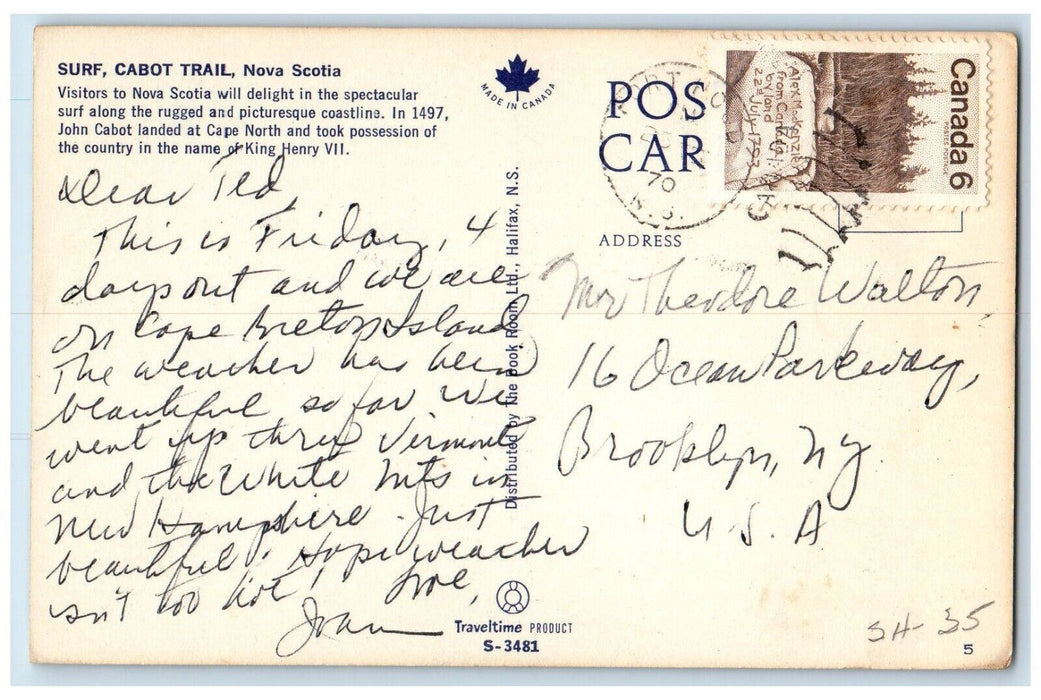 SURF, CABOT TRAIL, Nova Scotia
Visitors to Nova Scotia will delight in the spectacular
surf along the rugged and picturesque coastline. In 1497,
John Cabot landed at Cape North and took possession of
the country in the name of King Henry VII.
Dear Ted,
This is Friday, 4
days out and we are
on Cape Breton Island
The weather has been
beautiful so far We
went up thru Vermont
and the White Mts in
New Hampshire. Just
beautiful! Hope weather
isn't too hot! Love,
Joan
MADE IN CANADA
Distributed by The Book Room Ltd., Halifax, N.S.
Traveltime PRODUCT
S-3481
POS
CAR
70
N.S.
Canada 6
POSTES POSTAGE
Alex MacKenzie
from Canada
by land
22d July 1793
ADDRESS
Mr Theodore Walton,
16 Ocean Parkway,
Brooklyn, NY.
U.S.A
SH-35
5